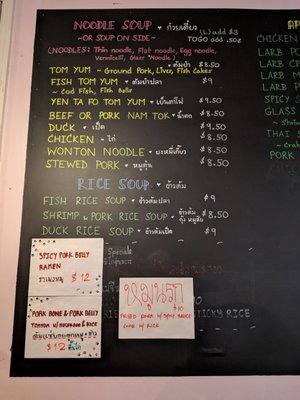 NOODLE SOUP • ก๋วยเตี๋ยว
~ OR SOUP ON SIDE ~ (L) add $3
TOGO add .50¢
(NOODLES: Thin noodle, Flat noodle, Egg noodle,
Vermicelli, Glass Noodle)
TOM YUM • ต้มยำ $8.50
~ Ground Pork, Liver, Fish Cakes
FISH TOM YUM • ต้มยำปลา $9
~ Cod Fish, Fish Balls
YEN TA FO TOM YUM • เย็นตาโฟ $9.50
BEEF OR PORK NAM TOK • น้ำตก $8.50
DUCK • เป็ด $9
CHICKEN • ไก่ $8.50
WONTON NOODLE • บะหมี่เกี๊ยว $8.50
STEWED PORK • หมูตุ๋น $8.50
RICE SOUP • ข้าวต้ม
FISH RICE SOUP • ข้าวต้มปลา $9
SHRIMP & PORK RICE SOUP • ข้าวต้ม กุ้ง หมูสับ $8.50
DUCK RICE SOUP • ข้าวต้มเป็ด $9
Specials
SPICY PORK BELLY
RAMEN
$12
PORK BONE & PORK BELLY
TOMYUM W/ MUSHROOM & RICE
$12
หมูนรก
$10
FRIED PORK W/ SPICY SAUCE
COME W/ RICE
STICKY RICE
AP
CHICKEN
LARB PO
LARB
LARB
SPICY
GLASS
~ Shrim
THAI
~ Crab
PORK